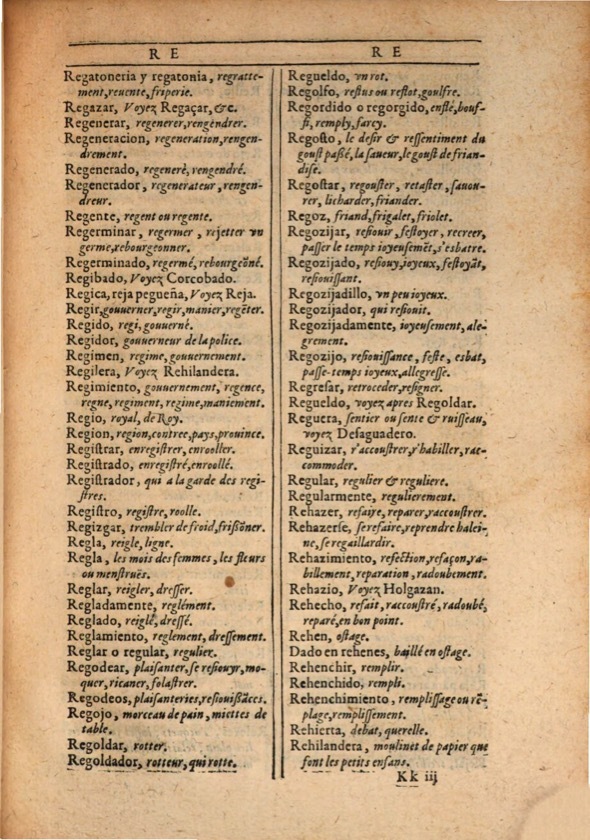 R E
Regatoneria y regatonia, regratte-
ment, reuente, friperie.
Regazar, Voyez Regaçar, &c.
Regenerar, regenerer, rengendrer.
Regeneracion, regeneration, rengen-
drement.
Regenerado, regeneré, rengendré.
Regenerador, regenerateur, rengen-
dreur.
Regente, regent ou regente.
Regerminar, regermer, rejetter vn
germe, rebourgeonner.
Regerminado, regermé, rebourgeõné.
Regibado, Voyez Corcobado.
Regica, reja pegueña, Voyez Reja.
Regir, gouuerner, regir, manier, regẽter.
Regido, regi, gouuerné.
Regidor, gouuerneur de la police.
Regimen, regime, gouuernement.
Regilera, Voyez Rehilandera.
Regimiento, gouuernement, regence,
regne, regiment, regime, maniement.
Regio, royal, de Roy.
Region, region, contree, pays, prouince.
Regiſtrar, enregiſtrer, enrooller.
Regiſtrado, enregiſtré, enroollé.
Regiſtrador, qui a la garde des regi-
ſtres.
Regiſtro, regiſtre, roolle.
Regizgar, trembler de froid, friſſõner.
Regla, reigle, ligne.
Regla, les mois des femmes, les fleurs
ou menſtruës.
Reglar, reigler, dreſſer.
Regladamente, reglément.
Reglado, reiglé, dreſſé.
Reglamiento, reglement, dreſſement.
Reglar o regular, regulier.
Regodear, plaiſanter, ſe reſiouyr, mo-
quer, ricaner, folaſtrer.
Regodeos, plaiſanteries, reſiouiſſãces.
Regojo, morceau de pain, miettes de
table.
Regoldar, rotter.
Regoldador, rotteur, qui rotte.
R E
Regueldo, vn rot.
Regolfo, reflus ou reflot, goulfre.
Regordido o regorgido, enflé, bouf-
fi, remply, farcy.
Regoſto, le deſir & reſſentiment du
gouſt paſſé, la ſaueur, le gouſt de frian-
diſe.
Regoſtar, regouſter, retaſter, ſauou-
rer, licharder, friander.
Regoz, friand, frigalet, friolet.
Regozijar, reſiouir, feſtoyer, recreer,
paſſer le temps ioyeuſemẽt, s'esbatre.
Regozijado, reſiouy, ioyeux, feſtoyãt,
reſiouiſſant.
Regozijadillo, vn peu ioyeux.
Regozijador, qui reſiouit.
Regozijadamente, ioyeuſement, ale-
grement.
Regozijo, reſiouiſſance, feſte, esbat,
paſſe-temps ioyeux, allegreſſe.
Regreſar, retroceder, reſigner.
Regueldo, voyez apres Regoldar.
Reguera, ſentier ou ſente & ruiſſeau,
voyez Deſaguadero.
Reguizar, r'accouſtrer, r'habiller, rac-
commoder.
Regular, regulier & reguliere.
Regularmente, regulierement.
Rehazer, refaire, reparer, raccouſtrer.
Rehazerſe, ſe refaire, reprendre halei-
ne, ſe regaillardir.
Rehazimiento, refection, refaçon, ra-
billement, reparation, radoubement.
Rehazio, Voyez Holgazan.
Rehecho, refait, raccouſtré, radoubé,
reparé, en bon point.
Rehen, oſtage.
Dado en rehenes, baillé en oſtage.
Rehenchir, remplir.
Rehenchido, rempli.
Rehenchimiento, rempliſſage ou rẽ-
plage, rempliſſement.
Rehierta, debat, querelle.
Rehilandera, moulinet de papier que
font les petits enfans.
Kk iij